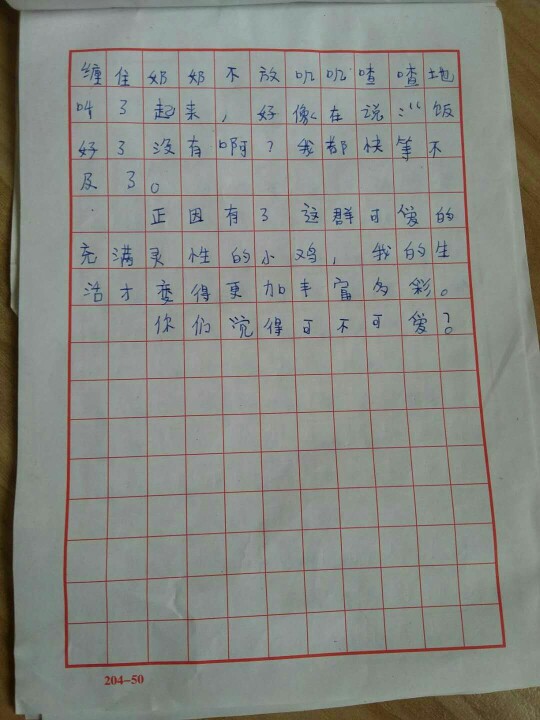 缠住奶奶不放叽叽喳喳地
叫了起来，好像在说：“饭
好了没有啊？我都快等不
及了。
正因有了这群可爱的
充满灵性的小鸡，我的生
活才变得更加丰富多彩。
你们觉得可不可爱？
204-50